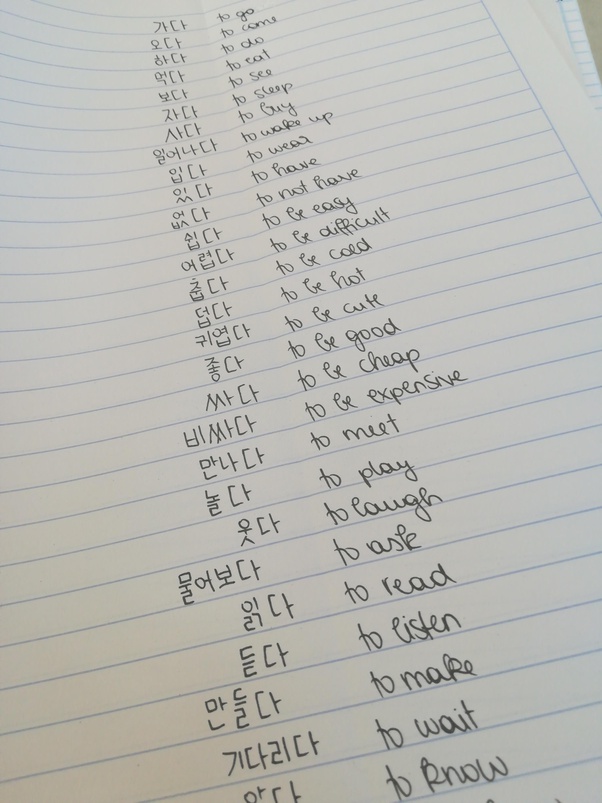 가다 to go
오다 to come
하다 to do
먹다 to eat
보다 to see
자다 to sleep
사다 to buy
일어나다 to wake up
입다 to wear
있다 to have
없다 to not have
쉽다 to be easy
어렵다 to be difficult
춥다 to be cold
덥다 to be hot
귀엽다 to be cute
좋다 to be good
싸다 to be cheap
비싸다 to be expensive
만나다 to meet
놀다 to play
웃다 to laugh
물어보다 to ask
읽다 to read
듣다 to listen
만들다 to make
기다리다 to wait
알다 to know